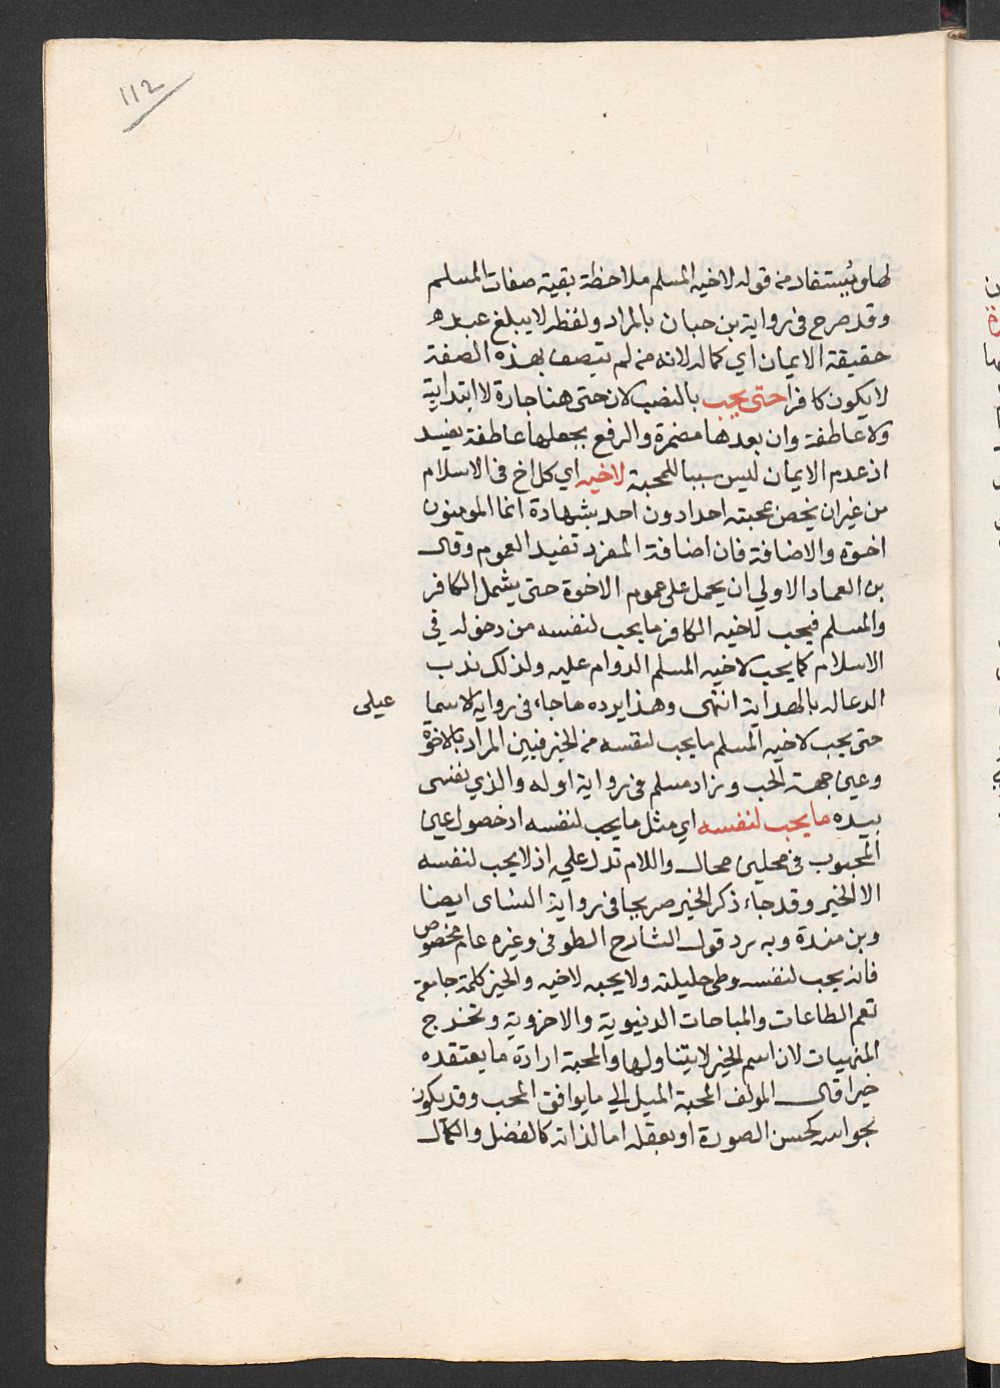 112
لها ويستفاد من قوله لاخيه المسلم ملاحظة بقية صفات المسلم
وقد صرح في رواية بن حبان بالمراد ولفظه لا يبلغ عبد
حقيقة الايمان اي كماله لانه من لم يتصف بهذه الصفة
لا يكون كافرا حتى يحب بالنصب لان حتى هنا جارة لا ابتدائية
ولا عاطفة وان بعدها مضمرة والرفع بجعلها عاطفة يفسد
اذ عدم الايمان ليس سببا للمحبة لاخيه اي كل اخ في الاسلام
من غير ان يخص بمحبته احدا دون احد بشهادة انما المومنون
اخوة والاضافة فان اضافة المفرد تفيد العموم وقال
بن العماد الاولي ان يحمل على عموم الاخوة حتى يشمل الكافر
والمسلم فيحب لاخيه الكافر ما يحب لنفسه من دخوله في
الاسلام كما يحب لاخيه المسلم الدوام عليه ولذلك ندب
الدعا له بالهداية انتهى وهذا يرده ما جاء في رواية الاسما
عيلى
حتى يحب لاخيه المسلم ما يحب لنفسه من الخير فبين المراد بالاخوة
وعين جهة الحب وزاد مسلم في رواية اوله والذي نفسي
بيده ما يحب لنفسه اي مثل ما يحب لنفسه اذ حصول عين
المحبوب في محلين محال واللام تدل على اذ لا يحب لنفسه
الا الخير وقد جاء ذكر الخير صريحا في رواية النساى ايضا
وبن مندة وبه يرد قول الشارح الطوفى وغيره عام مخصوص
فانه يحب لنفسه وطى حليلته ولا يحبه لاخيه والخير كلمة جامعة
تعم الطاعات والمباحات الدنيوية والاخروية وتخرج
المنهيات لان اسم الخير لا يتناولها والمحبة ارادة ما يعتقده
خيرا قال المولف المحبة الميل الي ما يوافق المحب وقد يكون
بحواسه كحسن الصورة او بعقله اما لذاته كالفضل والكمال